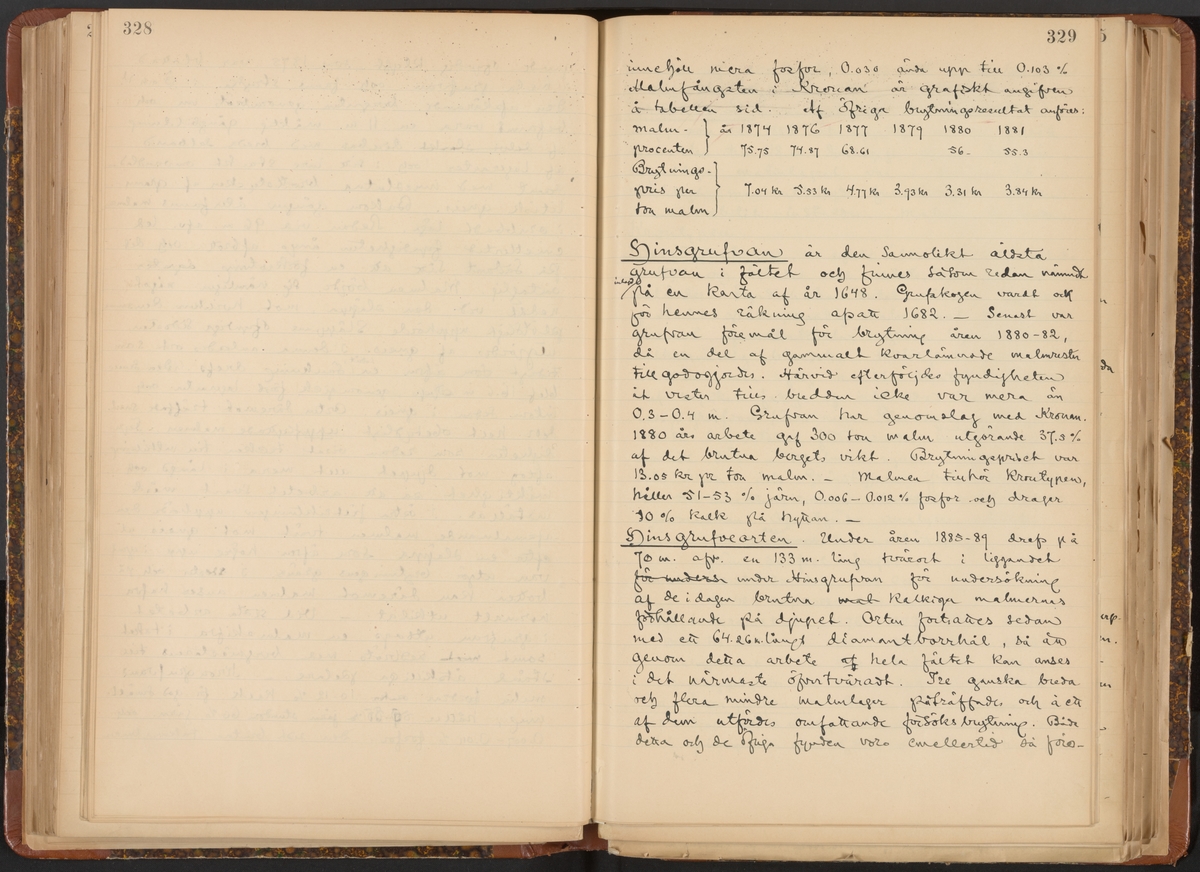 328
329
innehöll mera fosfor, 0.030 ända upp till 0.103 %
Malmfångsten i Kronan är grafiskt angifven
å tabellen sid. Af öfriga brytningsresultat anföres:
malm- } år 1874 1876 1877 1879 1880 1881
procenten } 75.75 74.87 68.61 56. 55.3
Brytnings-
pris per } 7.04 kr 5.53 kr 4.77 kr 3.93 kr 3.31 kr 3.84 kr
ton malm
Hinsgrufvan är den sannolikt äldsta
grufvan i fältet och finnes såsom redan nämndt
på en karta af år 1648. Grufskogen vardt ock
för hennes räkning 1682. — Senast var
grufvan föremål för brytning åren 1880-82,
då en del af gammalt kvarlämnade malmrester
tillgodogjordes. Härvid efterföljdes fyndigheten
åt vester tills bredden icke var mera än
0.3-0.4 m. Grufvan har genomslag med Kronan.
1880 års arbete gaf 300 ton malm utgörande 37.5 %
af det brutna bergets vikt. Brytningspriset var
13.05 kr pr ton malm. — Malmen tillhör Krontypen,
håller 51-53 % järn, 0.006-0.012 % fosfor och drager
10 % kalk på hyttan. —
Hinsgrufveorten. Under åren 1885-89 drefs på
70 m. afv. en 133 m. lång tvärort i liggandet
för unders. under Hinsgrufvan för undersökning
af de i dagen brutna kalkiga malmernas
förhållande på djupet. Orten fortsattes sedan
med ett 64.26 m. långt diamantborrhål, så att
genom detta arbete af hela fältet kan anses
i det närmaste öfvertväradt. Tre ganska breda
och flera mindre malmlager påträffades och å ett
af dem utfördes omfattande försöksbrytning. Både
detta och de öfriga fynden voro emellertid så fos-